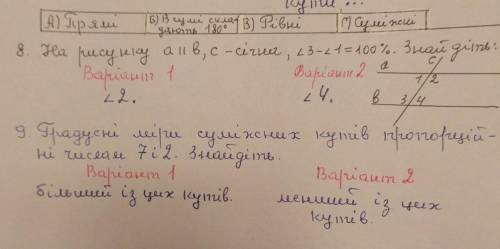 кути ...
А) Прямі Б) В сумі скла- В) Рівні Г) Суміжні
дають 180°
8. На рисунку а॥в, с -січна, ∠3-∠1=100%. Знайдіть:
Варіант 1 Варіант 2
∠2. ∠4.
а с
1 2
в 3 4
9. Градусні міри суміжних кутів пропорцій-
ні числам 7 і 2. Знайдіть.
Варіант 1 Варіант 2
більший із цих кутів. менший із цих
кутів.